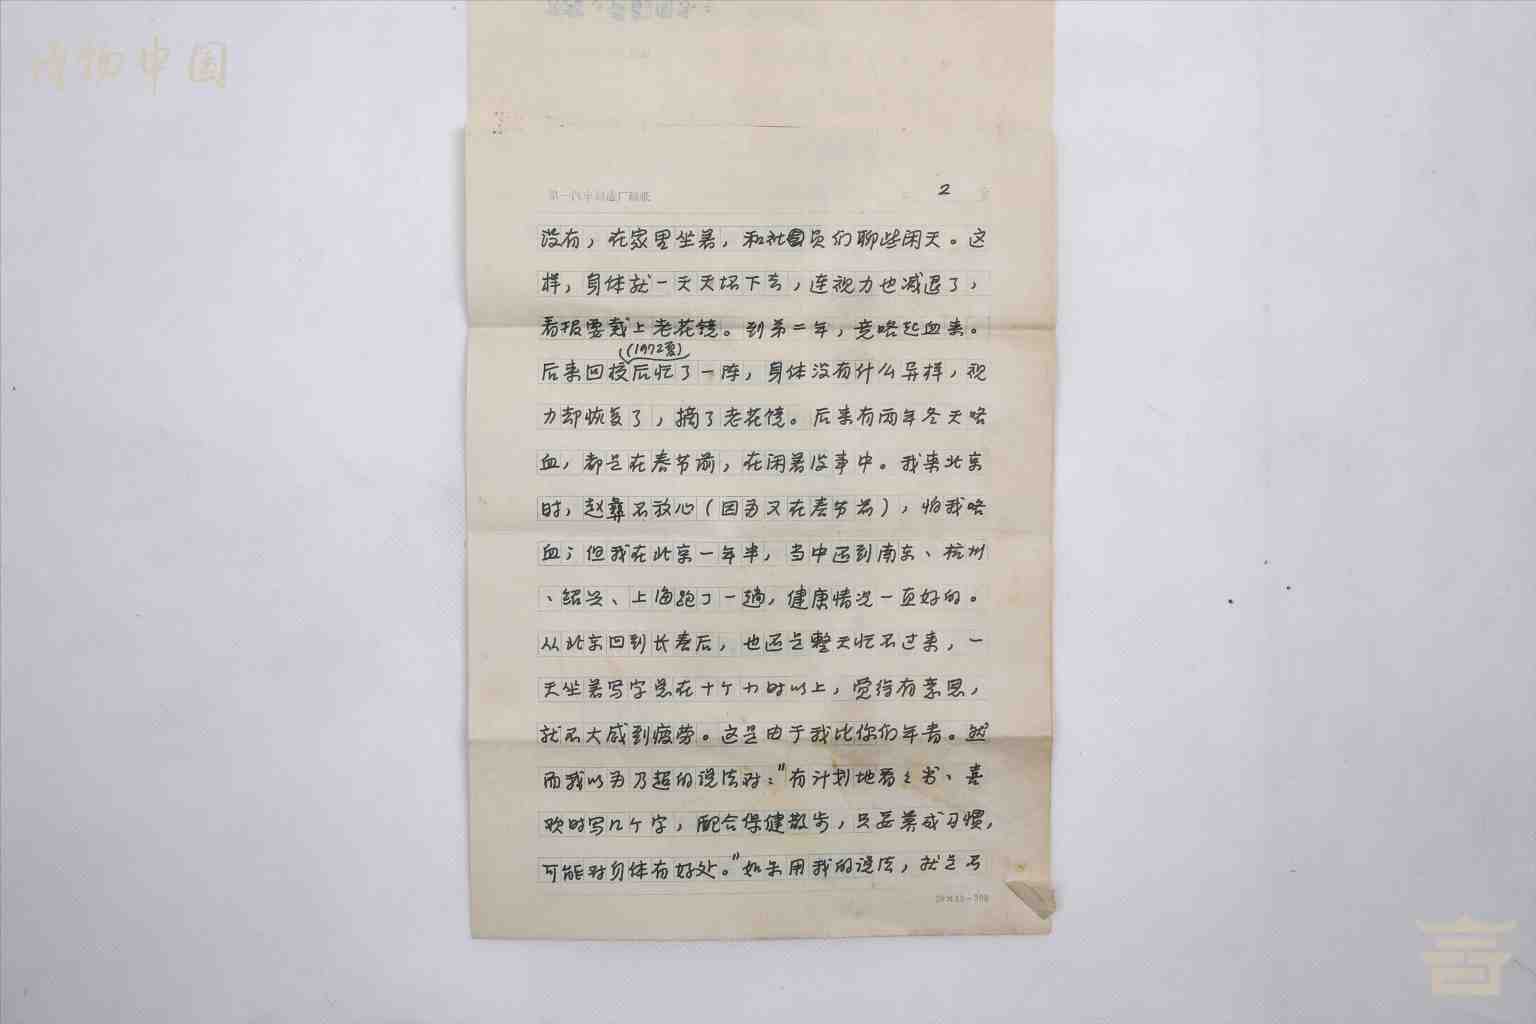 博物中国
第一汽车制造厂稿纸
2
没有，在家里坐着，和社员们聊些闲天。这
样，身体就一天天坏下去，连视力也减退了，
看报要戴上老花镜。到第二年，竟咯起血来。
(1972夏)
后来回校后忙了一阵，身体没有什么异样，视
力却恢复了，摘了老花镜。后来有两年冬天咯
血，都是在春节前，在闲着没事中。我来北京
时，赵彝不放心（因为又在春节前），怕我咯
血；但我在北京一年半，当中还到南京、杭州
、绍兴、上海跑了一趟，健康情况一直好的。
从北京回到长春后，也还是整天忙不过来，一
天坐着写字总在十个小时以上，觉得有意思，
就不大感到疲劳。这是由于我比你们年青。然
而我以为乃超的说法对："有计划地看看书、喜
欢时写几个字，配合保健散步，只要养成习惯，
可能对身体有好处。"如果用我的说法，就是不
20×15=300